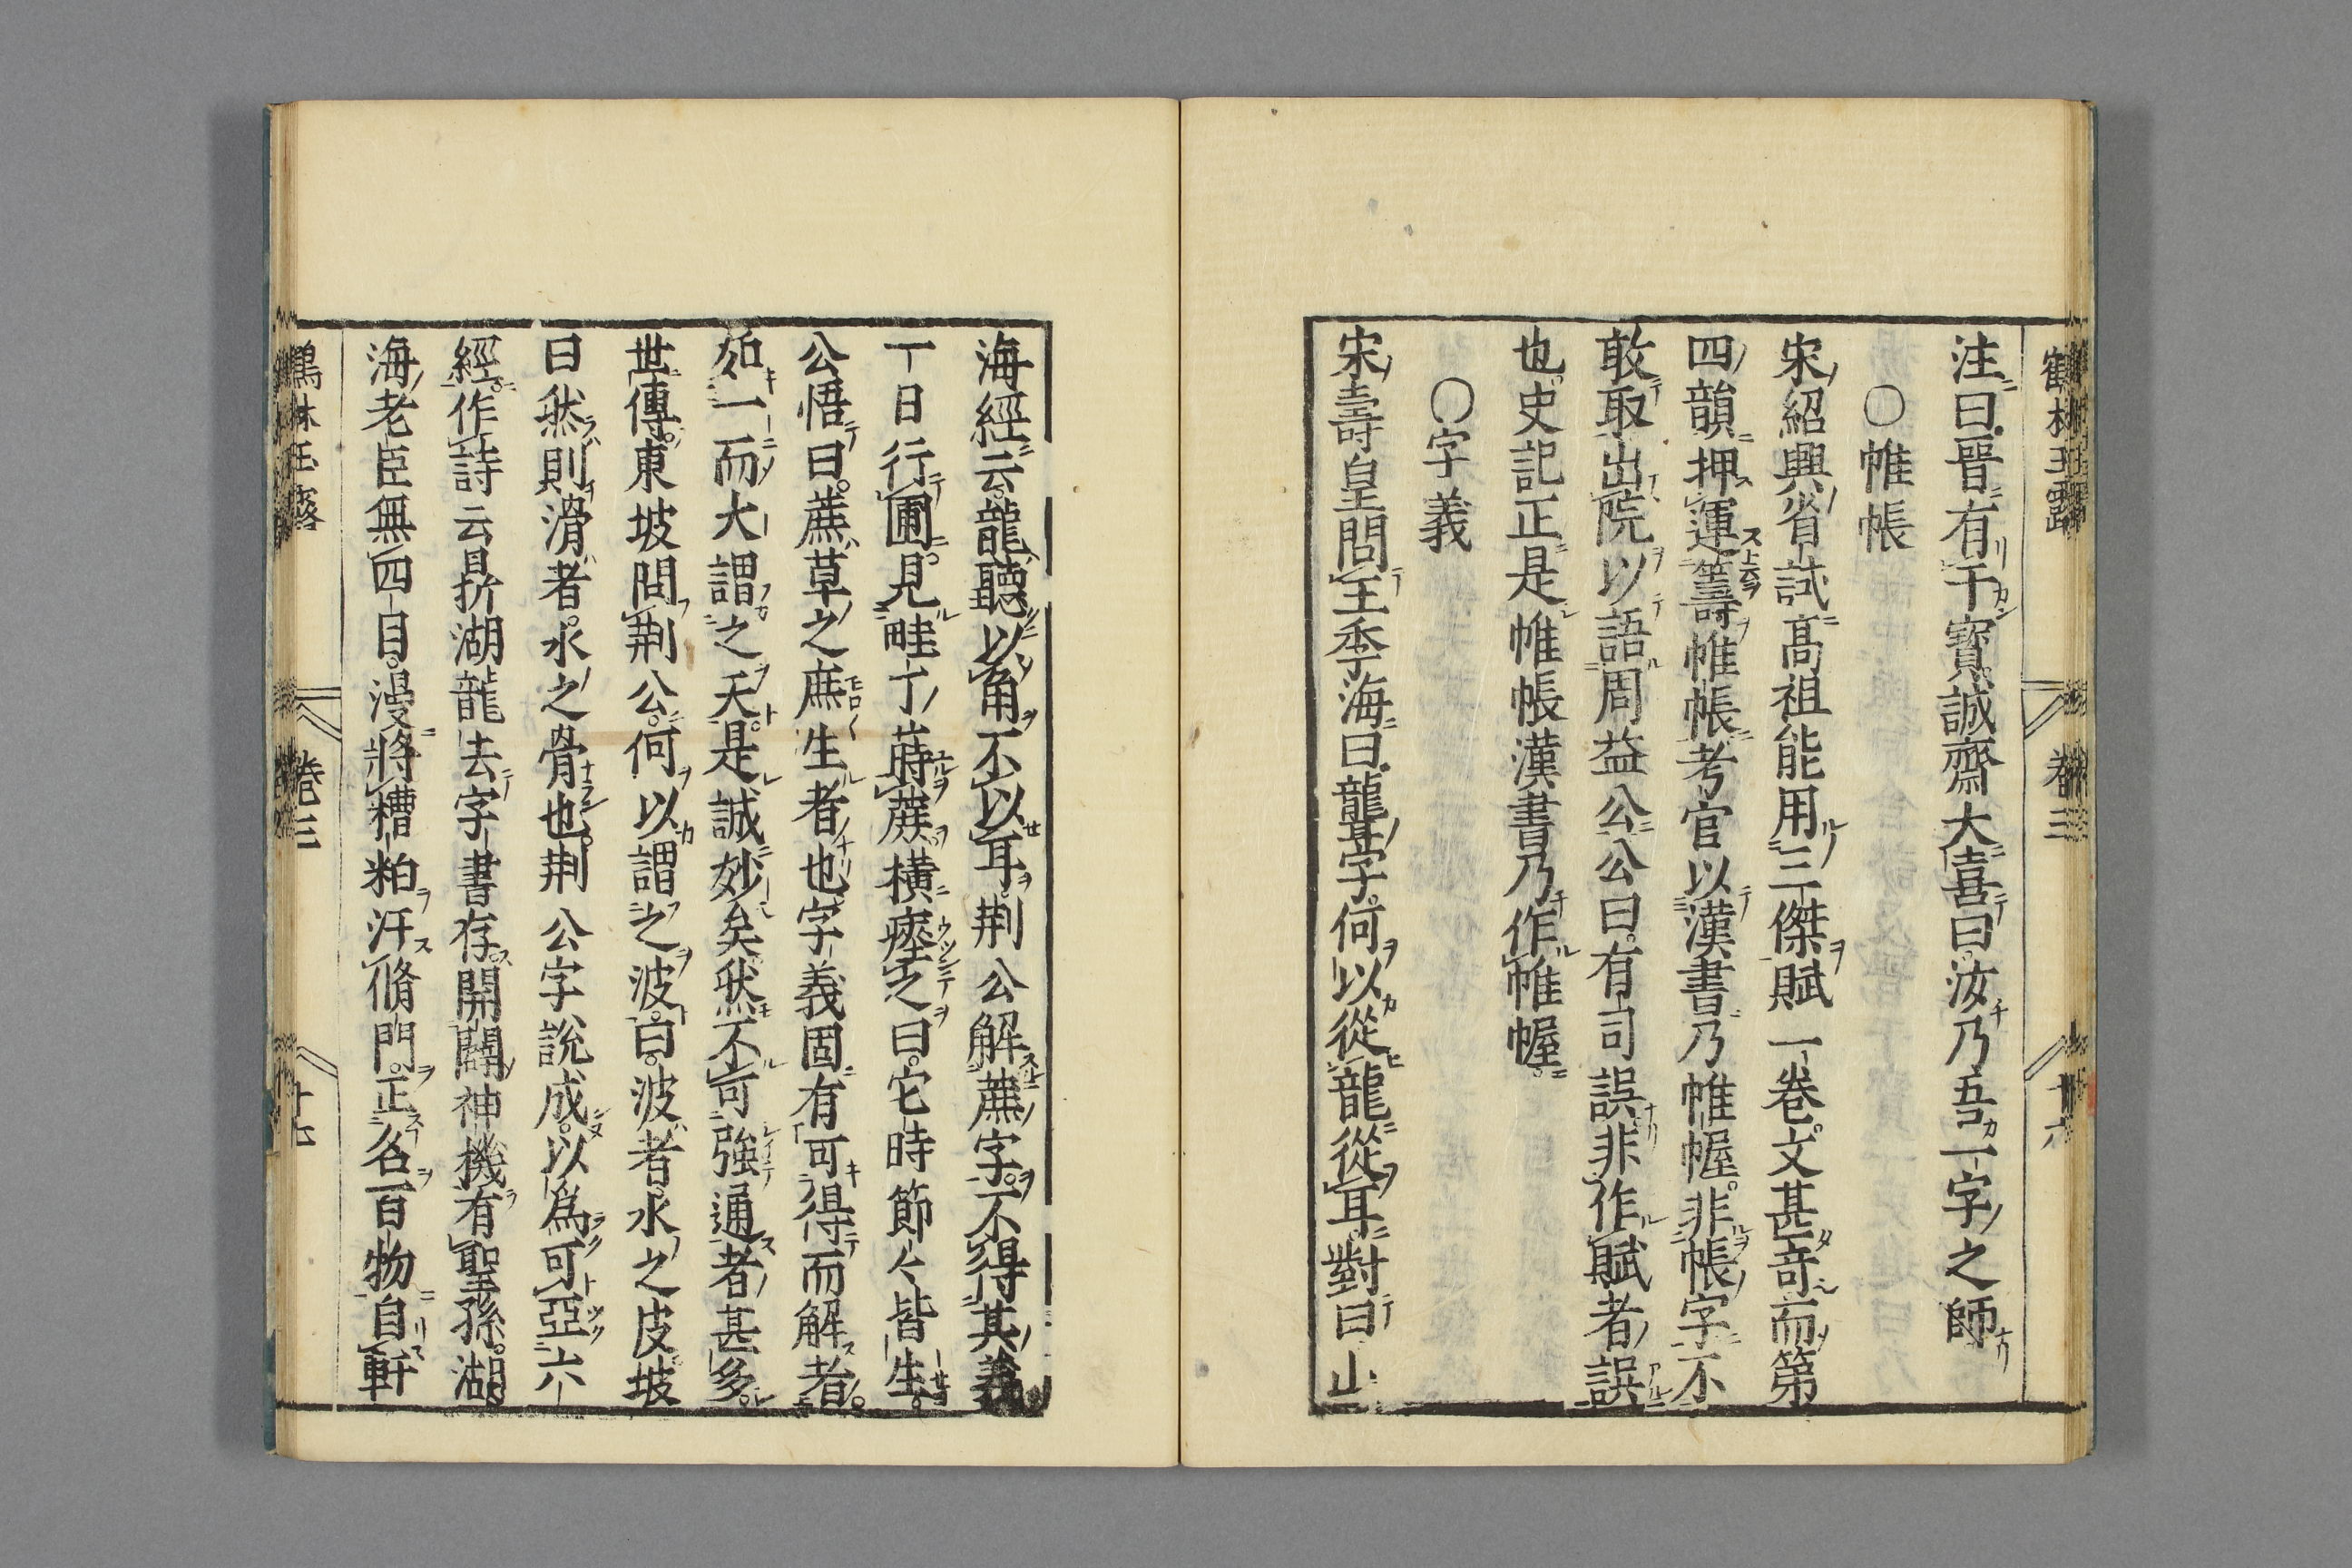 鶴林玉露 卷三 十六
注曰晉有干寶誠齋大喜曰汝乃吾一字之師
○帷帳
宋紹興省試高祖能用三傑賦一卷文甚奇而第
四韻押運籌帷帳考官以漢書乃帷幄非帳字不
敢取出院以語周益公公曰有司誤非作賦者誤
也史記正是帷帳漢書乃作帷幄
○字義
宋壽皇問王季海曰聾字何以從龍從耳對曰山
海經云龍聽以角不以耳荊公解蔗字不得其義
一日行圃見畦丁蒔蔗橫瘞之曰它時節々皆生
公悟曰蔗草之庶生者也字義固有可得而解者
如一而大謂之天是誠妙矣然不可強通者甚多
世傳東坡問荊公何以謂之波曰波者水之皮坡
曰然則滑者水之骨也荊公字說成以爲可亞六
經作詩云鼎湖龍去字書存開闢神機有聖孫湖
海老臣無四目漫將糟粕汗脩門正名百物自軒
鶴林玉露 卷三 十七